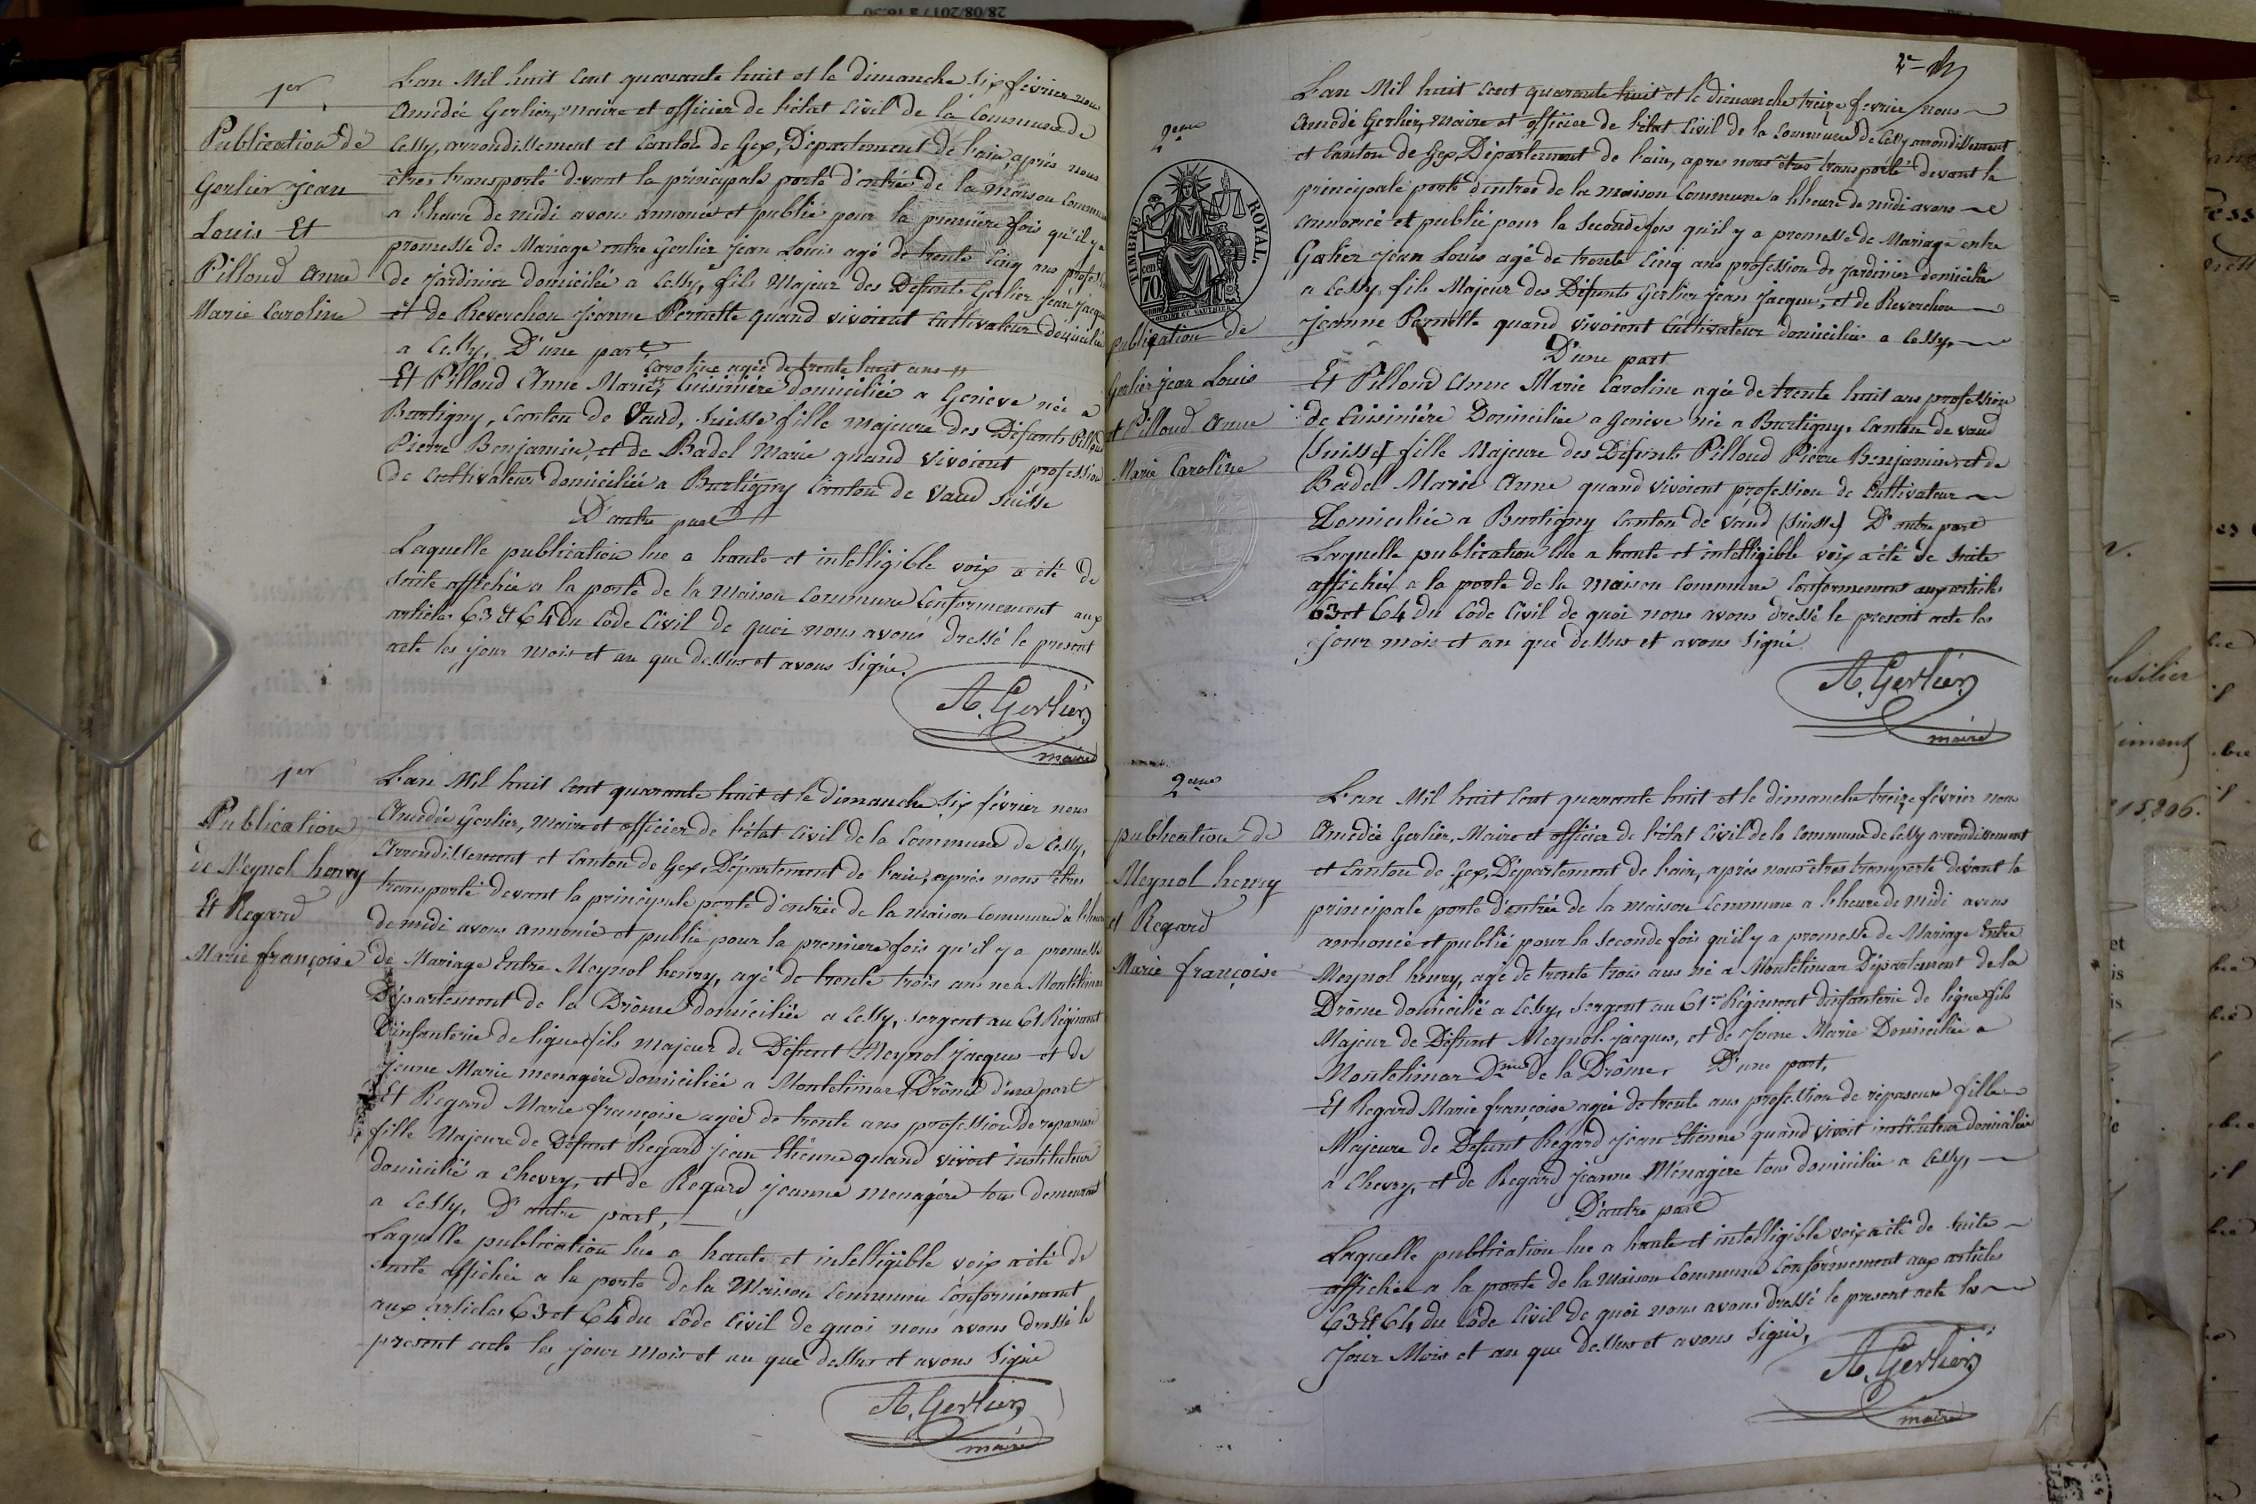 1er
Publication de
Gerlier Jean
Louis Et
Pilloud Anne
Marie Caroline
L'an Mil huit Cent quarante huit et le dimanche Six février nous
Amédée Gerlier, maire et officier de l'état Civil de la Commune de
Cessy, arrondissement et Canton de Gex, Département de l'ain, après nous
êtres transporté devant la principale porte d'entrée de la maison Commune
a l'heure de midi avons annoncé et publié pour la première fois qu'il y a
promesse de Mariage entre Gerlier Jean Louis agé de trente Cinq ans profession
de Jardinier domicilié a Cessy, fils Majeur des Défunts Gerlier Jean Jacques
et de Reverchon Jeanne Pernette quand vivoient Cultivateur domicilié
a Cessy, D'une part,
Caroline agée de trente huit ans #
Et Pilloud Anne Marie Cuisinière domiciliée a Genève née a
Burtigny, Canton de Vaud, Suisse fille majeure des Défunts Pilloud
Pierre Benjamin, et de Badel Marie quand vivoient profession
de Cultivateur domiciliée a Burtigny Canton de Vaud Suisse
D'autre part
Laquelle publication lue a haute et intelligible voix a été de
suite affichée a la porte de la Maison Commune Conformement aux
articles 63 et 64 du Code Civil de quoi nous avons dressé le present
acte les jour mois et an que dessus et avons Signé.
A. Gerlier
maire
1er
Publication
de Meynol henry
Et Regard
Marie françoise
L'an Mil huit Cent quarante huit et le dimanche Six février nous
Amédée Gerlier, Maire et officier de l'état Civil de la Commune de Cessy,
Arrondissement et Canton de Gex, Département de l'ain, après nous êtres
transporté devant la principale porte d'entrée de la maison Commune a l'heure
de midi avons annoncé et publié pour la première fois qu'il y a promesse
de Mariage Entre Meynol henry, agé de trente trois ans né a Montelimar
Département de la Drôme domiciliée a Cessy, Sergent au 61 Régiment
D'infanterie de ligne fils majeur de Défunt Meynol jacques et de
Jeune Marie menagère domiciliée a Montelimar (Drôme) d'une part
Et Regard Marie françoise agée de trente ans profession de repasseuse
fille Majeure de Défunt Regard Jean Etienne quand vivoit instituteur
domicilié a Chevry, et de Regard jeanne menagère tous demeurant
a Cessy, D'autre part,
Laquelle publication lue a haute et intelligible voix a été de
suite affichée a la porte de la Maison Commune Conformément
aux articles 63 et 64 du Code Civil de quoi nous avons dressé le
present acte les jour mois et an que dessus et avons Signé
A. Gerlier
maire
2eme
TIMBRE ROYAL.
70
publication de
Gerlier jean Louis
et Pilloud Anne
Marie Caroline
L'an Mil huit Cent quarante huit et le dimanche treize février nous
Amédé Gerlier, maire et officier de l'état Civil de la Commune de Cessy arrondissement
et Canton de Gex, Département de l'ain, apres nous êtres transporté devant la
principale porte d'entrée de la maison Commune a l'heure de midi avons
annoncé et publié pour la Seconde fois qu'il y a promesse de Mariage entre
Gerlier Jean Louis agé de trente Cinq ans profession de jardinier domicilié
a Cessy fils Majeur des Défunts Gerlier jean jacques, et de Reverchon
Jeanne Pernette quand vivoient Cultivateur domiciliés a Cessy,
D'une part
Et Pilloud Anne Marie Caroline agée de trente huit ans profession
de Cuisinière Domiciliée a Genève née a Burtigny, Canton de vaud
(Suisse) fille Majeure des Défunts Pilloud Pierre Benjamin et de
Badel Marie Anne quand vivoient profession de Cultivateur
Domiciliée a Burtigny Canton de Vaud (Suisse) D'autre part
Laquelle publication lue a haute et intelligible voix a été de suite
affichée a la porte de la maison Commune Conformement aux articles
63 et 64 du Code Civil de quoi nous avons dressé le present acte les
jour mois et an que dessus et avons Signé
A. Gerlier
maire
2eme
publication de
Meynol henry
et Regard
Marie françoise
L'an Mil huit Cent quarante huit et le dimanche treize février nous
Amédée Gerlier, Maire et officier de l'état Civil de la Commune de Cessy arrondissement
et Canton de Gex, Département de l'ain, après nous êtres transporté devant la
principale porte d'entrée de la maison Commune a l'heure de midi avons
annoncé et publié pour la Seconde fois qu'il y a promesse de Mariage Entre
Meynol henry, agé de trente trois ans né a Montelimar Département de la
Drôme domicilié a Cessy, Sergent au 61me Régiment d'infanterie de ligne fils
Majeur de Défunt Meynol jacques, et de Jeune Marie Domiciliée a
Montelimar Dment de la Drôme, D'une part,
Et Regard Marie françoise agée de trente ans profession de repaseuse fille
Majeure de Défunt Regard Jean Etienne quand vivoit instituteur domicilié
a Chevry, et de Regard Jeanne Ménagère tous domiciliée a Cessy,
D'autre part
Laquelle publication lue a haute et intelligible voix a été de suite
affichée a la porte de la Maison Commune Conformement aux articles
63 et 64 du Code Civil de quoi nous avons dressé le present acte les
Jour Mois et an que dessus et avons Signé,
A. Gerlier
maire
15,206.